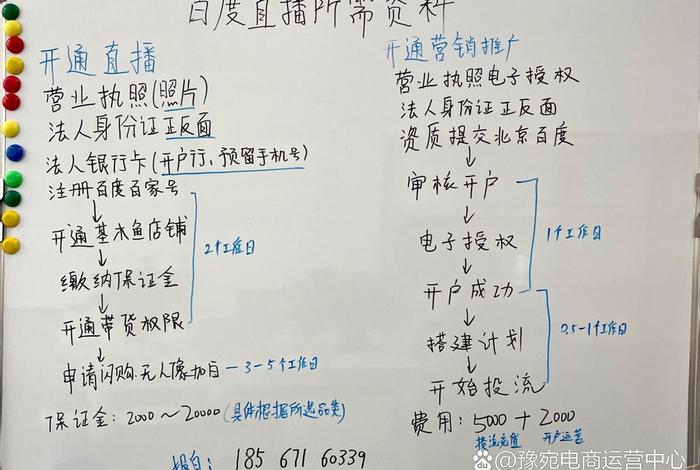 百度直播所需资料
开通直播
营业执照(照片)
法人身份证正反面
法人银行卡(开户行、预留手机号)
注册百度百家号
↓
开通基木鱼店铺
↓
缴纳保证金
↓
开通带货权限
↓
申请闪购.无人像加白 — 3-5个工作日
2个工作日
保证金: 2000～20000 (具体根据所选品类)
开通营销推广
营业执照电子授权
法人身份证正反面
资质提交北京百度
↓
审核开户
↓
电子授权
↓
开户成功
↓
搭建计划
↓
开始投流
1个工作日
0.5-1个工作日
费用: 5000 + 2000
投流充值 开户运营
185 6716 0339
豫宛电商运营中心